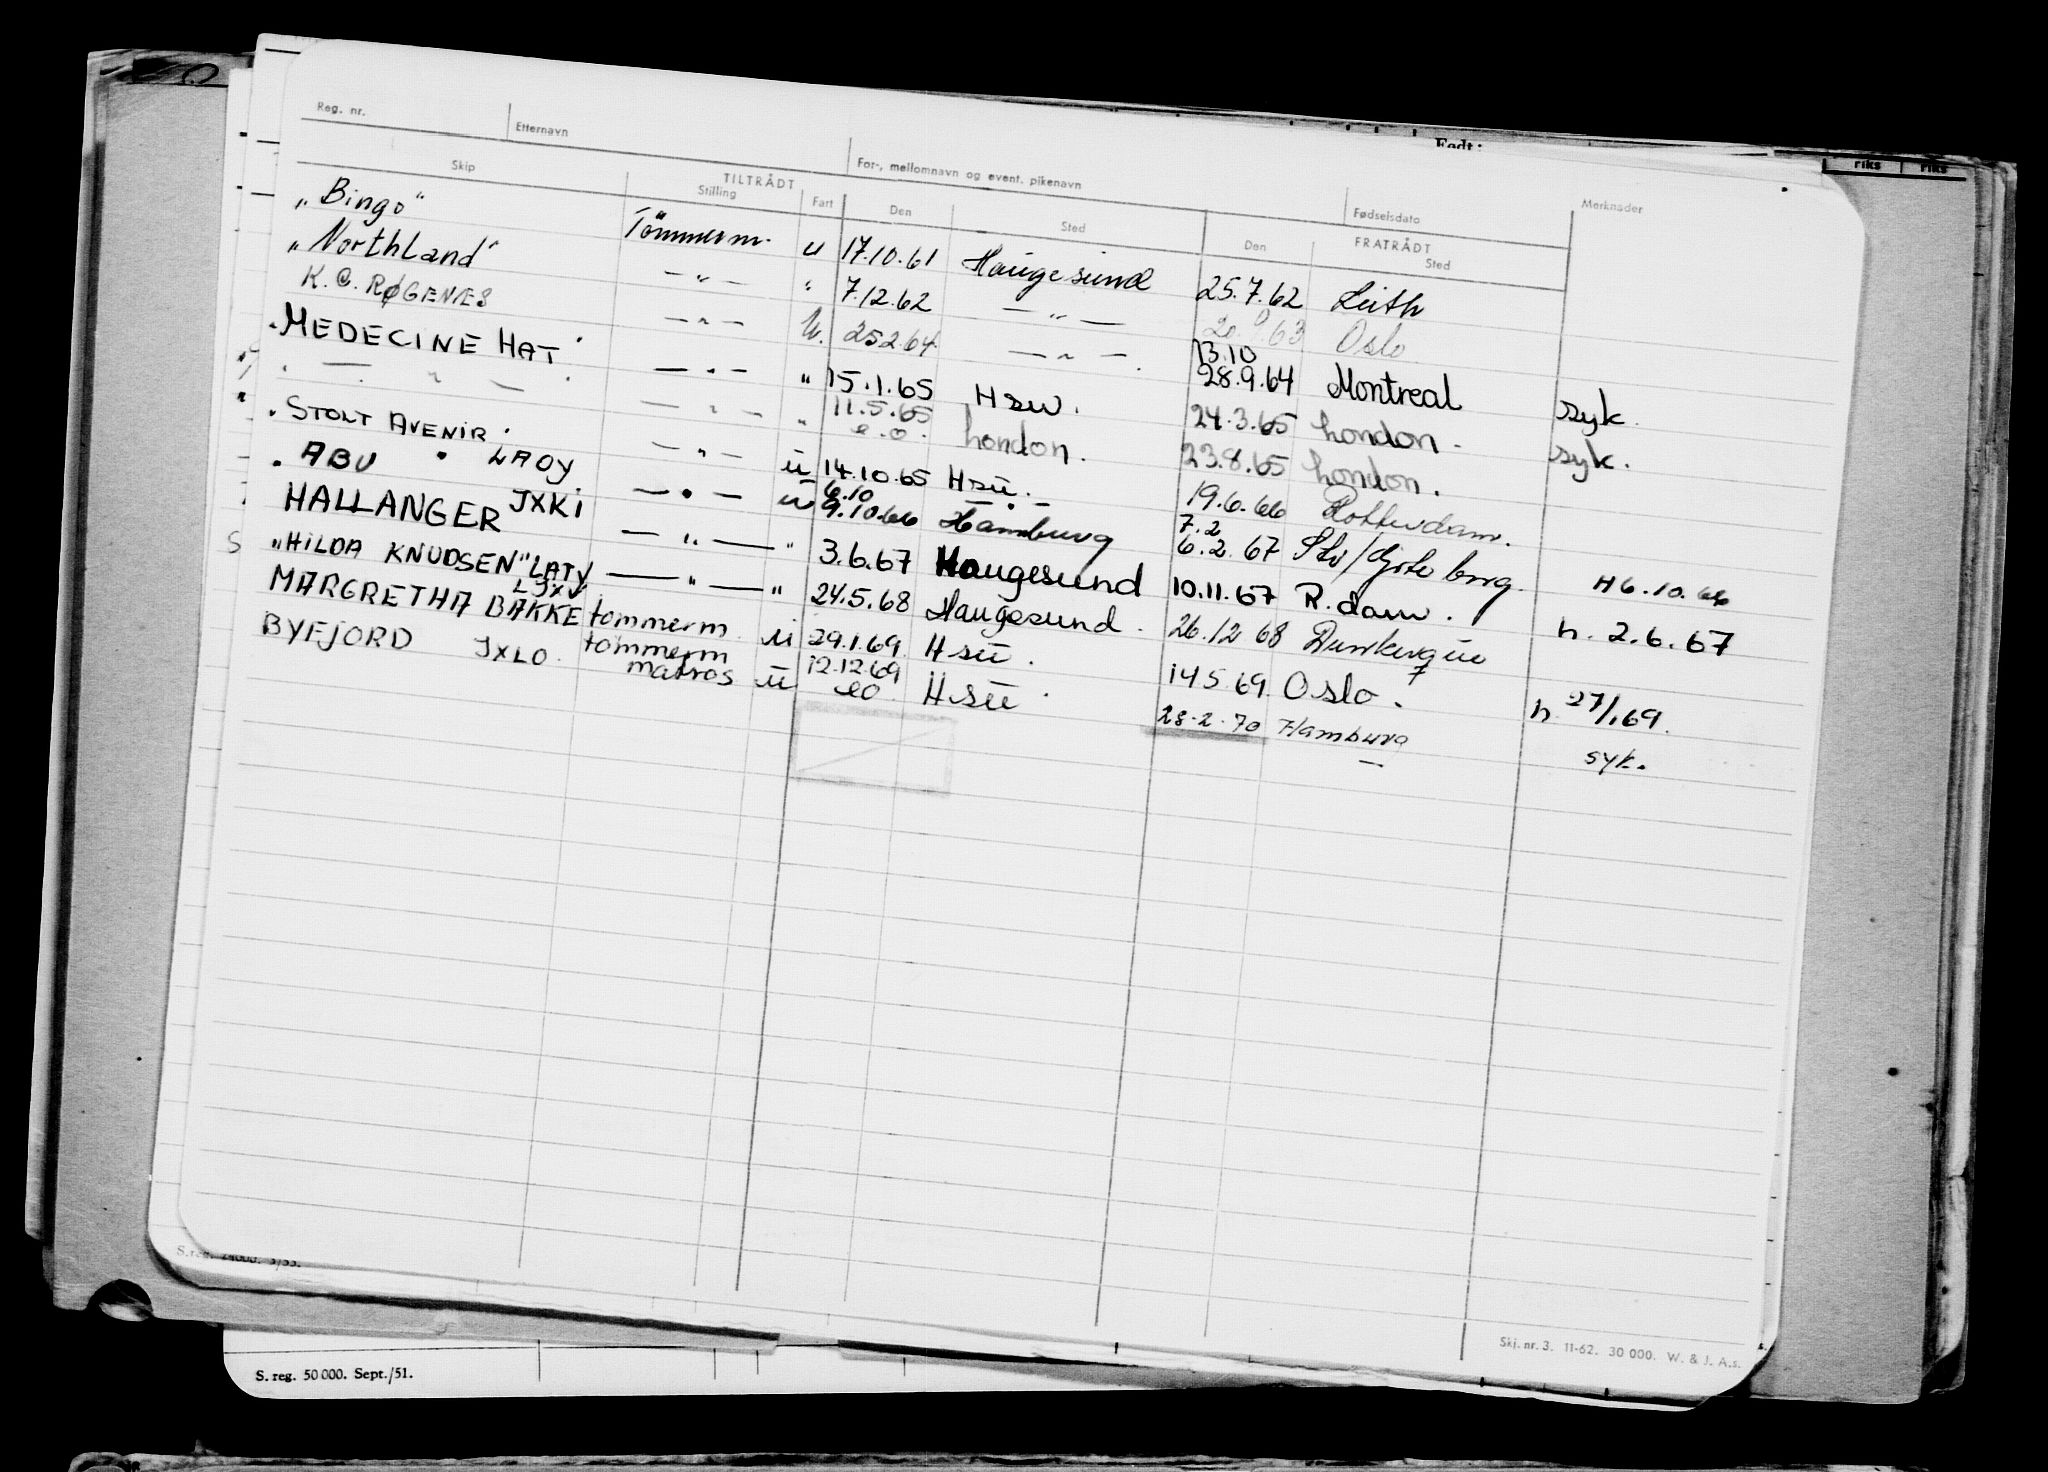 Født:
riks riks
Reg. nr. Etternavn For-, mellomnavn og event. pikenavn Fødselsdato Merknader
Skip TILTRÅDT FRATRÅDT
Stilling Fart Den Sted Den Sted
„Bingo“ Tömmerm. u 17.10.61 Haugesund 25.7.62 Leith
„Northland“ —"— " 7.12.62 —"— 63 Oslo
K. C. RØGENÆS —"— U. 25.2.64. —"— 13.10 28.9.64 Montreal syk.
"MEDECINE HAT" —"— " 15.1.65 Hsu. 24.3.65 London. syk.
" — " — —"— " 11.5.65 e.o. London. 23.8.65 London.
"STOLT AVENIR" —"— u 14.10.65 Hsu. 19.6.66 Rotterdam.
"ABU " LAOY —"— u 6.10 9.10.66 Hamburg 7.2 6.2.67 /Gøteborg. H 6.10.66
HALLANGER JXKI —"— " 3.6.67 Haugesund 10.11.67 R.dam. h. 2.6.67
S „HILDA KNUDSEN“ LATV —"— " 24.5.68 Haugesund. 26.12 68 Dunkerque
MARGRETHA BAKKE LJXV tømmerm. u 29.1.69 Hsu. 14.5.69 Oslo. h 27/1.69.
BYFJORD JXLO. tømmerm matros u 12.12.69 eo Hsu 28.2.70 Hamburg syk.
S.reg. 24000. 3/55.
Skj. nr. 3. 11-62. 30 000. W. & J. A.s.
S. reg. 50 000. Sept./51.